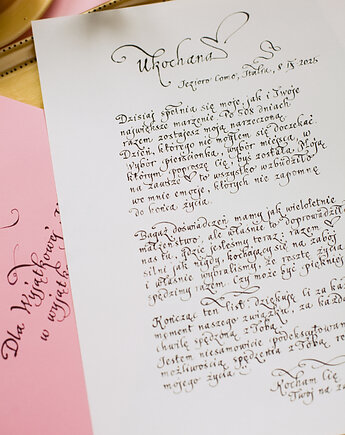 Ukochana
Jezioro Como, Italia, 8 IX 2025
Dzisiaj spełnia się moje, jak i Twoje
największe marzenie. Po 508 dniach
razem zostajesz moją narzeczoną.
Dzień, którego nie mogłem się doczekać.
Wybór pierścionka, wybór miejsca, w
którym poproszę Cię byś została Moją
na zawsze to wszystko wzbudziło
we mnie emocje, których nie zapomnę
do końca życia.
Bagaż doświadczeń mamy jak wieloletnie
małżeństwo, ale właśnie to doprowadziło
nas tu, gdzie jesteśmy teraz: razem
silni jak nigdy, kochający się na zabój
i właśnie wybraliśmy, że resztę życia
spędzimy razem. Czy może być piękniej
Kończąc ten list, dziękuję Ci za każdy
moment naszego związku, za każdą
chwilę spędzoną z Tobą.
Jestem niesamowicie podekscytowany
możliwością spędzenia z Tobą
mojego życia
Kocham Cię
Twój na
Dla Wyjątkowej
w wyjątk